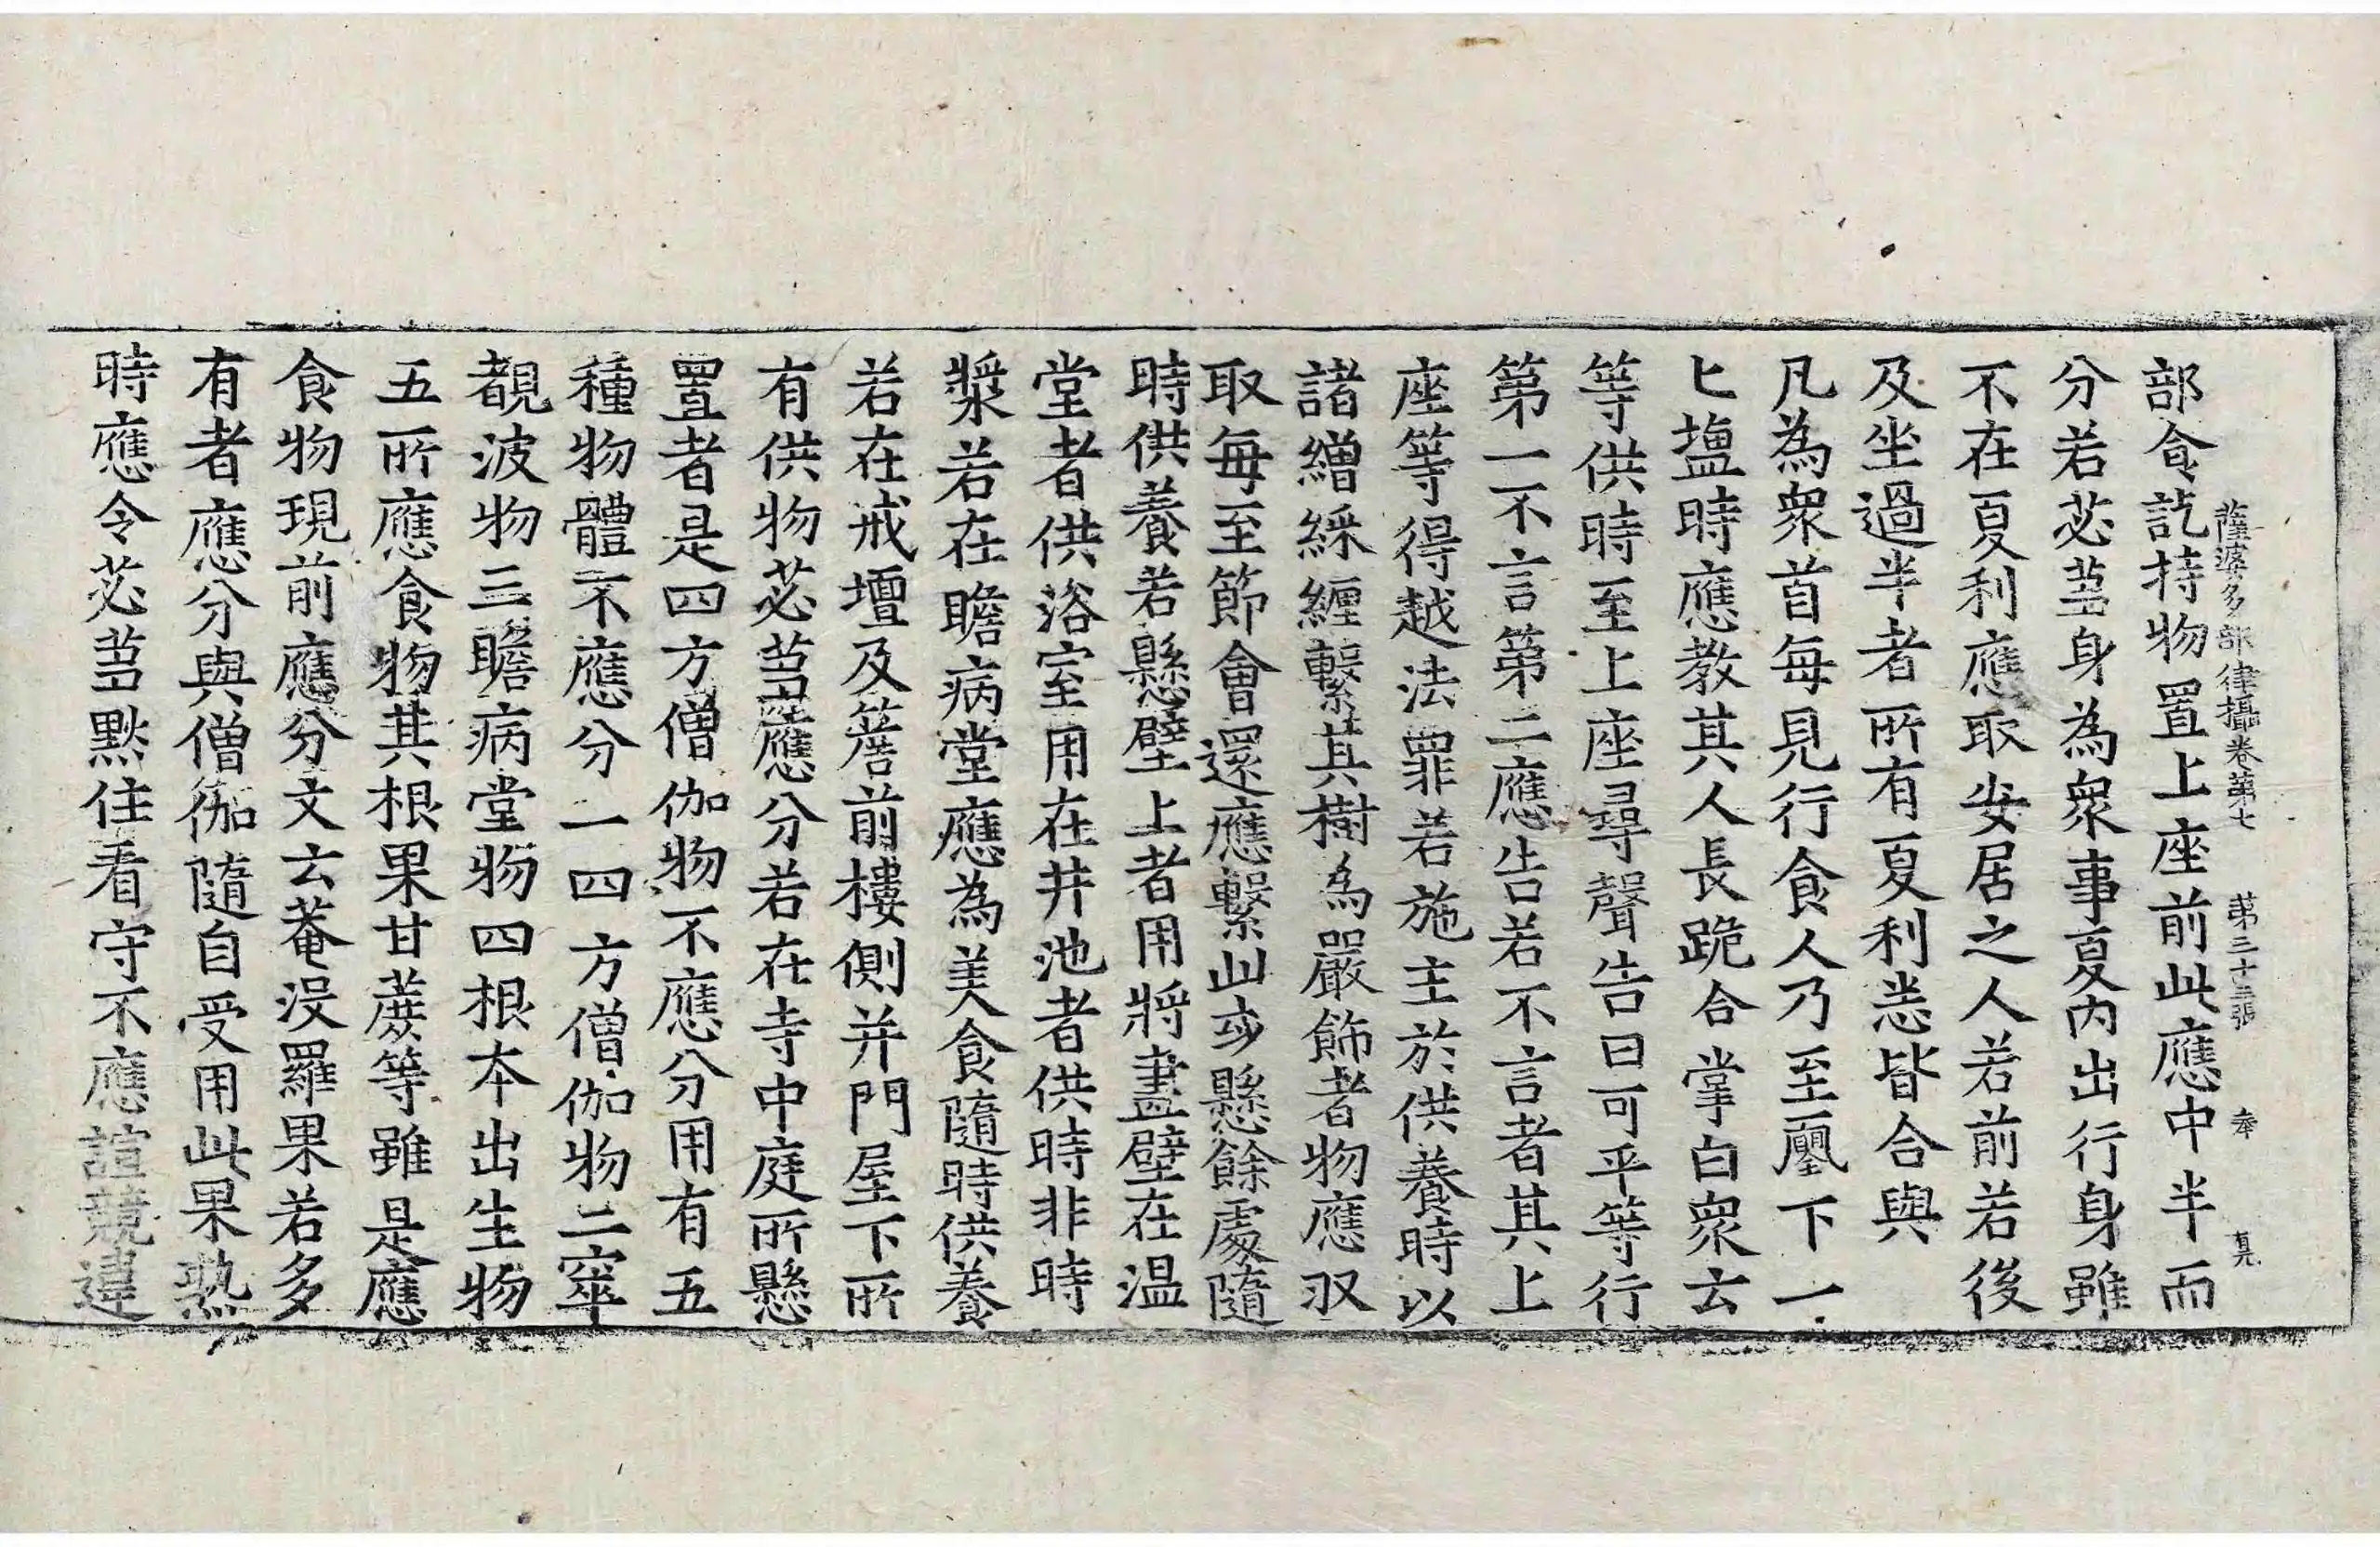 部食訖持物置上座前此應中半而
薩婆多部律攝卷第七 第三十二張 奉
分若苾蒭身為衆事夏內出行身雖
不在夏利應取安居之人若前若後
及坐過半者所有夏利恙皆合與
凡為衆首每見行食人乃至𠙖下一
匕塩時應教其人長跪合掌白衆云
等供時至上座尋聲告曰可平等行
第一不言第二應告若不言者其上
座等得越法罪若施主於供養時以
諸繒綵纏繫其樹為嚴飾者物應収
取每至節會還應繫此幼懸餘處隨
時供養若懸壁上者用將畫壁在温
堂者供浴室用在井池者供時非時
漿若在瞻病堂應為美食隨時供養
若在戒壇及簷前樓側并門屋下所
有供物苾蒭應分若在寺中庭所懸
置者是四方僧伽物不應分用有五
種物體不應分一四方僧伽物二窣
覩波物三瞻病堂物四根本出生物
五所應食物其根果甘蔗等雖是應
食物現前應分文云菴沒羅果若多
有者應分與僧伽隨自受用此果熟
時應令苾蒭默住看守不應諠競違